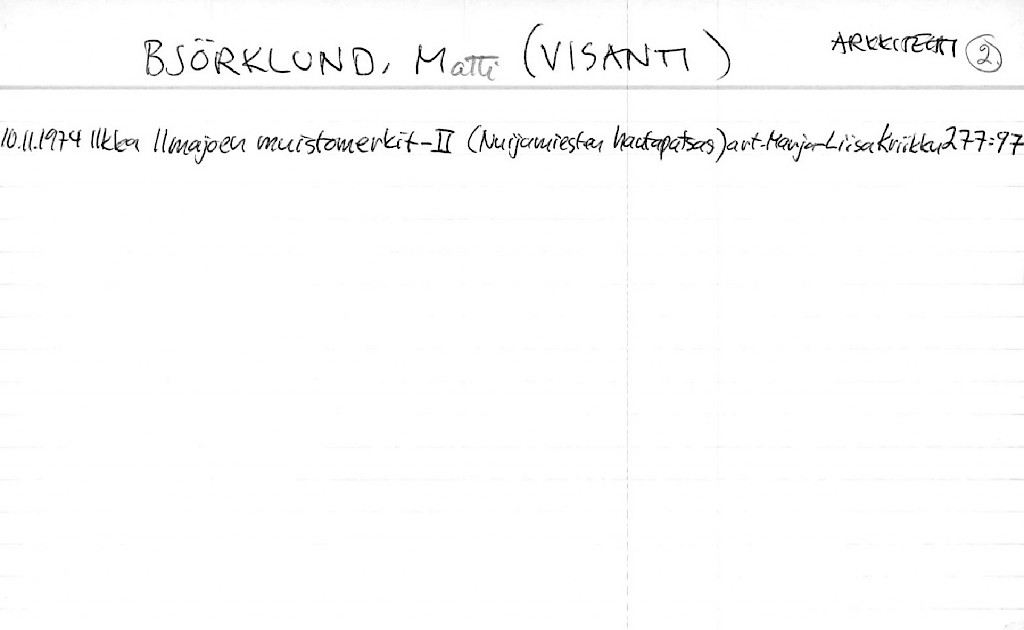 BJÖRKLUND, Matti (VISANTI) ARKKITEHTI 2
10.11.1974 Ilkka Ilmajoen muistomerkit-II (Nuijamiesten hautapatsas) art. Marja-Liisa Kriikku 277:97